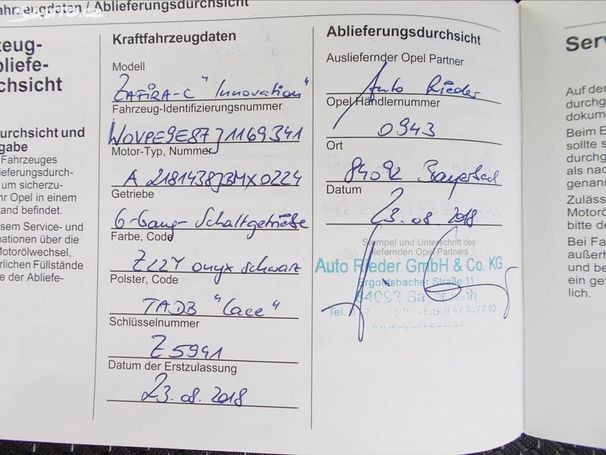 ahrzeugdaten / Ablieferungsdurchsicht
zeug-
bliefe-
chsicht
durchsicht und
gabe
Fahrzeuges
lieferungsdurch-
um sicherzu-
hr Opel in einem
tand befindet.
sem Service- und
nationen über die
Motorölwechsel,
rlichen Füllstände
e der Abliefe-
Kraftfahrzeugdaten
Modell
ZAFIRA-C "Innovation"
Fahrzeug-Identifizierungsnummer
W0VPE9E87J1169341
Motor-Typ, Nummer
A 2181438JBMX0224
Getriebe
6-Gang-Schaltgetriebe
Farbe, Code
Z22Y onyx schwarz
Polster, Code
TADB "Lace"
Schlüsselnummer
Z5941
Datum der Erstzulassung
23.08.2018
Ablieferungsdurchsicht
Ausliefernder Opel Partner
Auto Rieder
Opel Händlernummer
0943
Ort
84092 Bayerbach
Datum
23.08.2018
Stempel und Unterschrift des
liefernden Opel Partners
Auto Rieder GmbH & Co. KG
Ergoldsbacher Straße 11
84092 Bayerbach
Ser
Auf der
durchg
dokum
Beim E
sollte s
durchg
als nac
genann
Zuläss
Motoröl
bitte de
Bei Fa
außerh
und be
ein gef
lich.